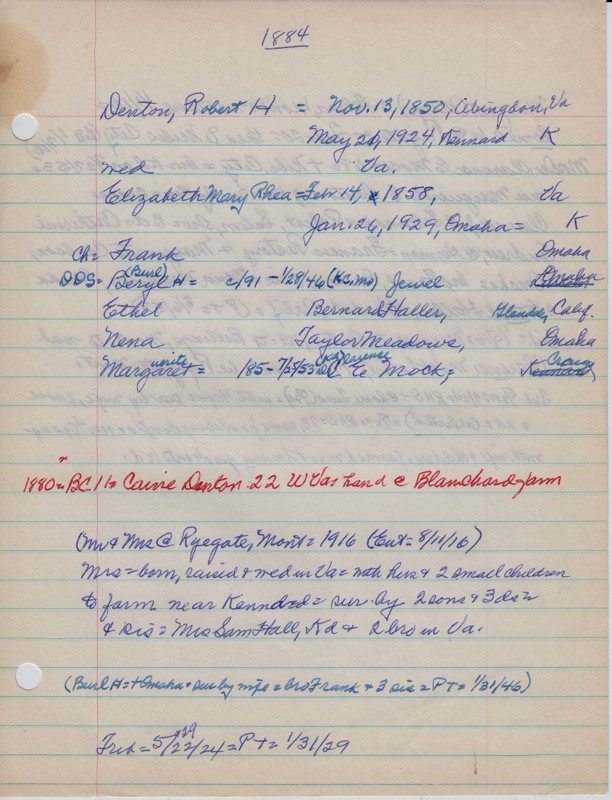 1884
Denton, Robert H = Nov. 13, 1850, Abingdon, Va
May 20, 1924, Kennard K
med Va.
Elizabeth Mary Rhea = Feb 14, 1858, Va
Jan. 26, 1929, Omaha = K
Ch = Frank Omaha
DDS = Beryl (Burl) H = c/91 - 1/28/46 (K.C. Mo) Jewel Omaha
Ethel Bernard Haller, Glendale, Calif.
Nena Taylor Meadows, Omaha
Margaret = 185 - 7/25/53 C E Mock; Craig Kennard
1880 = BC 1/2 Denton 22 W Va = hand @ Blanchard farm
(Mr & Mrs @ Ryegate, Mont = 1916 (Ent = 8/11/16)
Mrs = born, raised & med in Va = with hus & 2 small children
to farm near Kennard = sur. by 2 sons & 3 ds =
& sis = Mrs Sam Hall, Kd & 2 bro in Va.
(Burl H = + Omaha = sur by wife = bro Frank & 3 sis = PT = 1/31/46)
= 5/22/24 = PT = 1/31/29